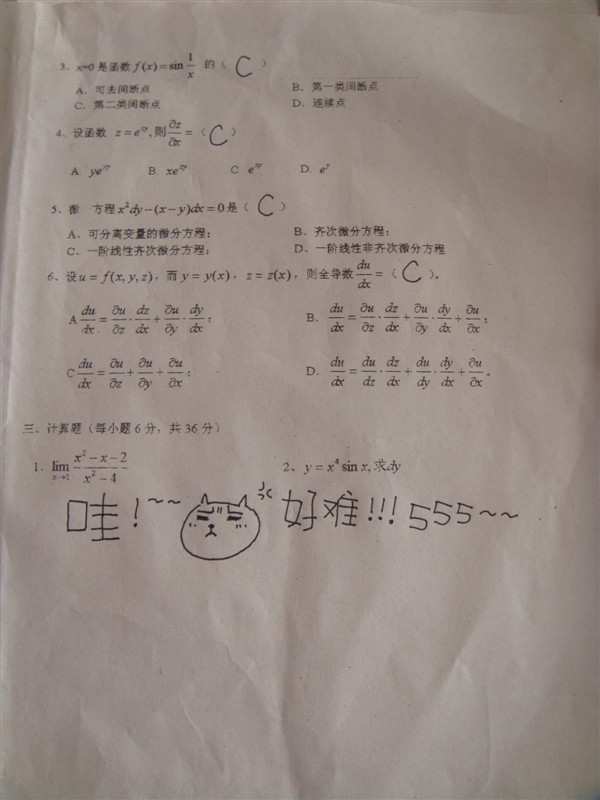 3、x=0 是函数 f(x)=sin 1/x 的（ C ）
A、可去间断点 B、第一类间断点
C、第二类间断点 D、连续点
4、设函数 z=e^{xy},则 ∂z/∂x =（ C ）
A. ye^{xy} B. xe^{xy} C e^{xy} D. e^y
5、微 方程 x²dy-(x-y)dx=0 是（ C ）
A、可分离变量的微分方程； B、齐次微分方程；
C、一阶线性齐次微分方程； D、一阶线性非齐次微分方程
6、设 u=f(x,y,z)，而 y=y(x)，z=z(x)，则全导数 du/dx =（ C ）。
A du/dx = ∂u/∂z · dz/dx + ∂u/∂y · dy/dx； B. du/dx = ∂u/∂z · dz/dx + ∂u/∂y · dy/dx + ∂u/∂x；
C du/dx = ∂u/∂z + ∂u/∂y + ∂u/∂x； D. du/dx = du/dz · dz/dx + du/dy · dy/dx + ∂u/∂x。
三、计算题（每小题 6 分，共 36 分）
1、lim x→2 (x²-x-2)/(x²-4) 2、y=x⁴ sin x,求dy
哇！~~ 好难!!! 555~~